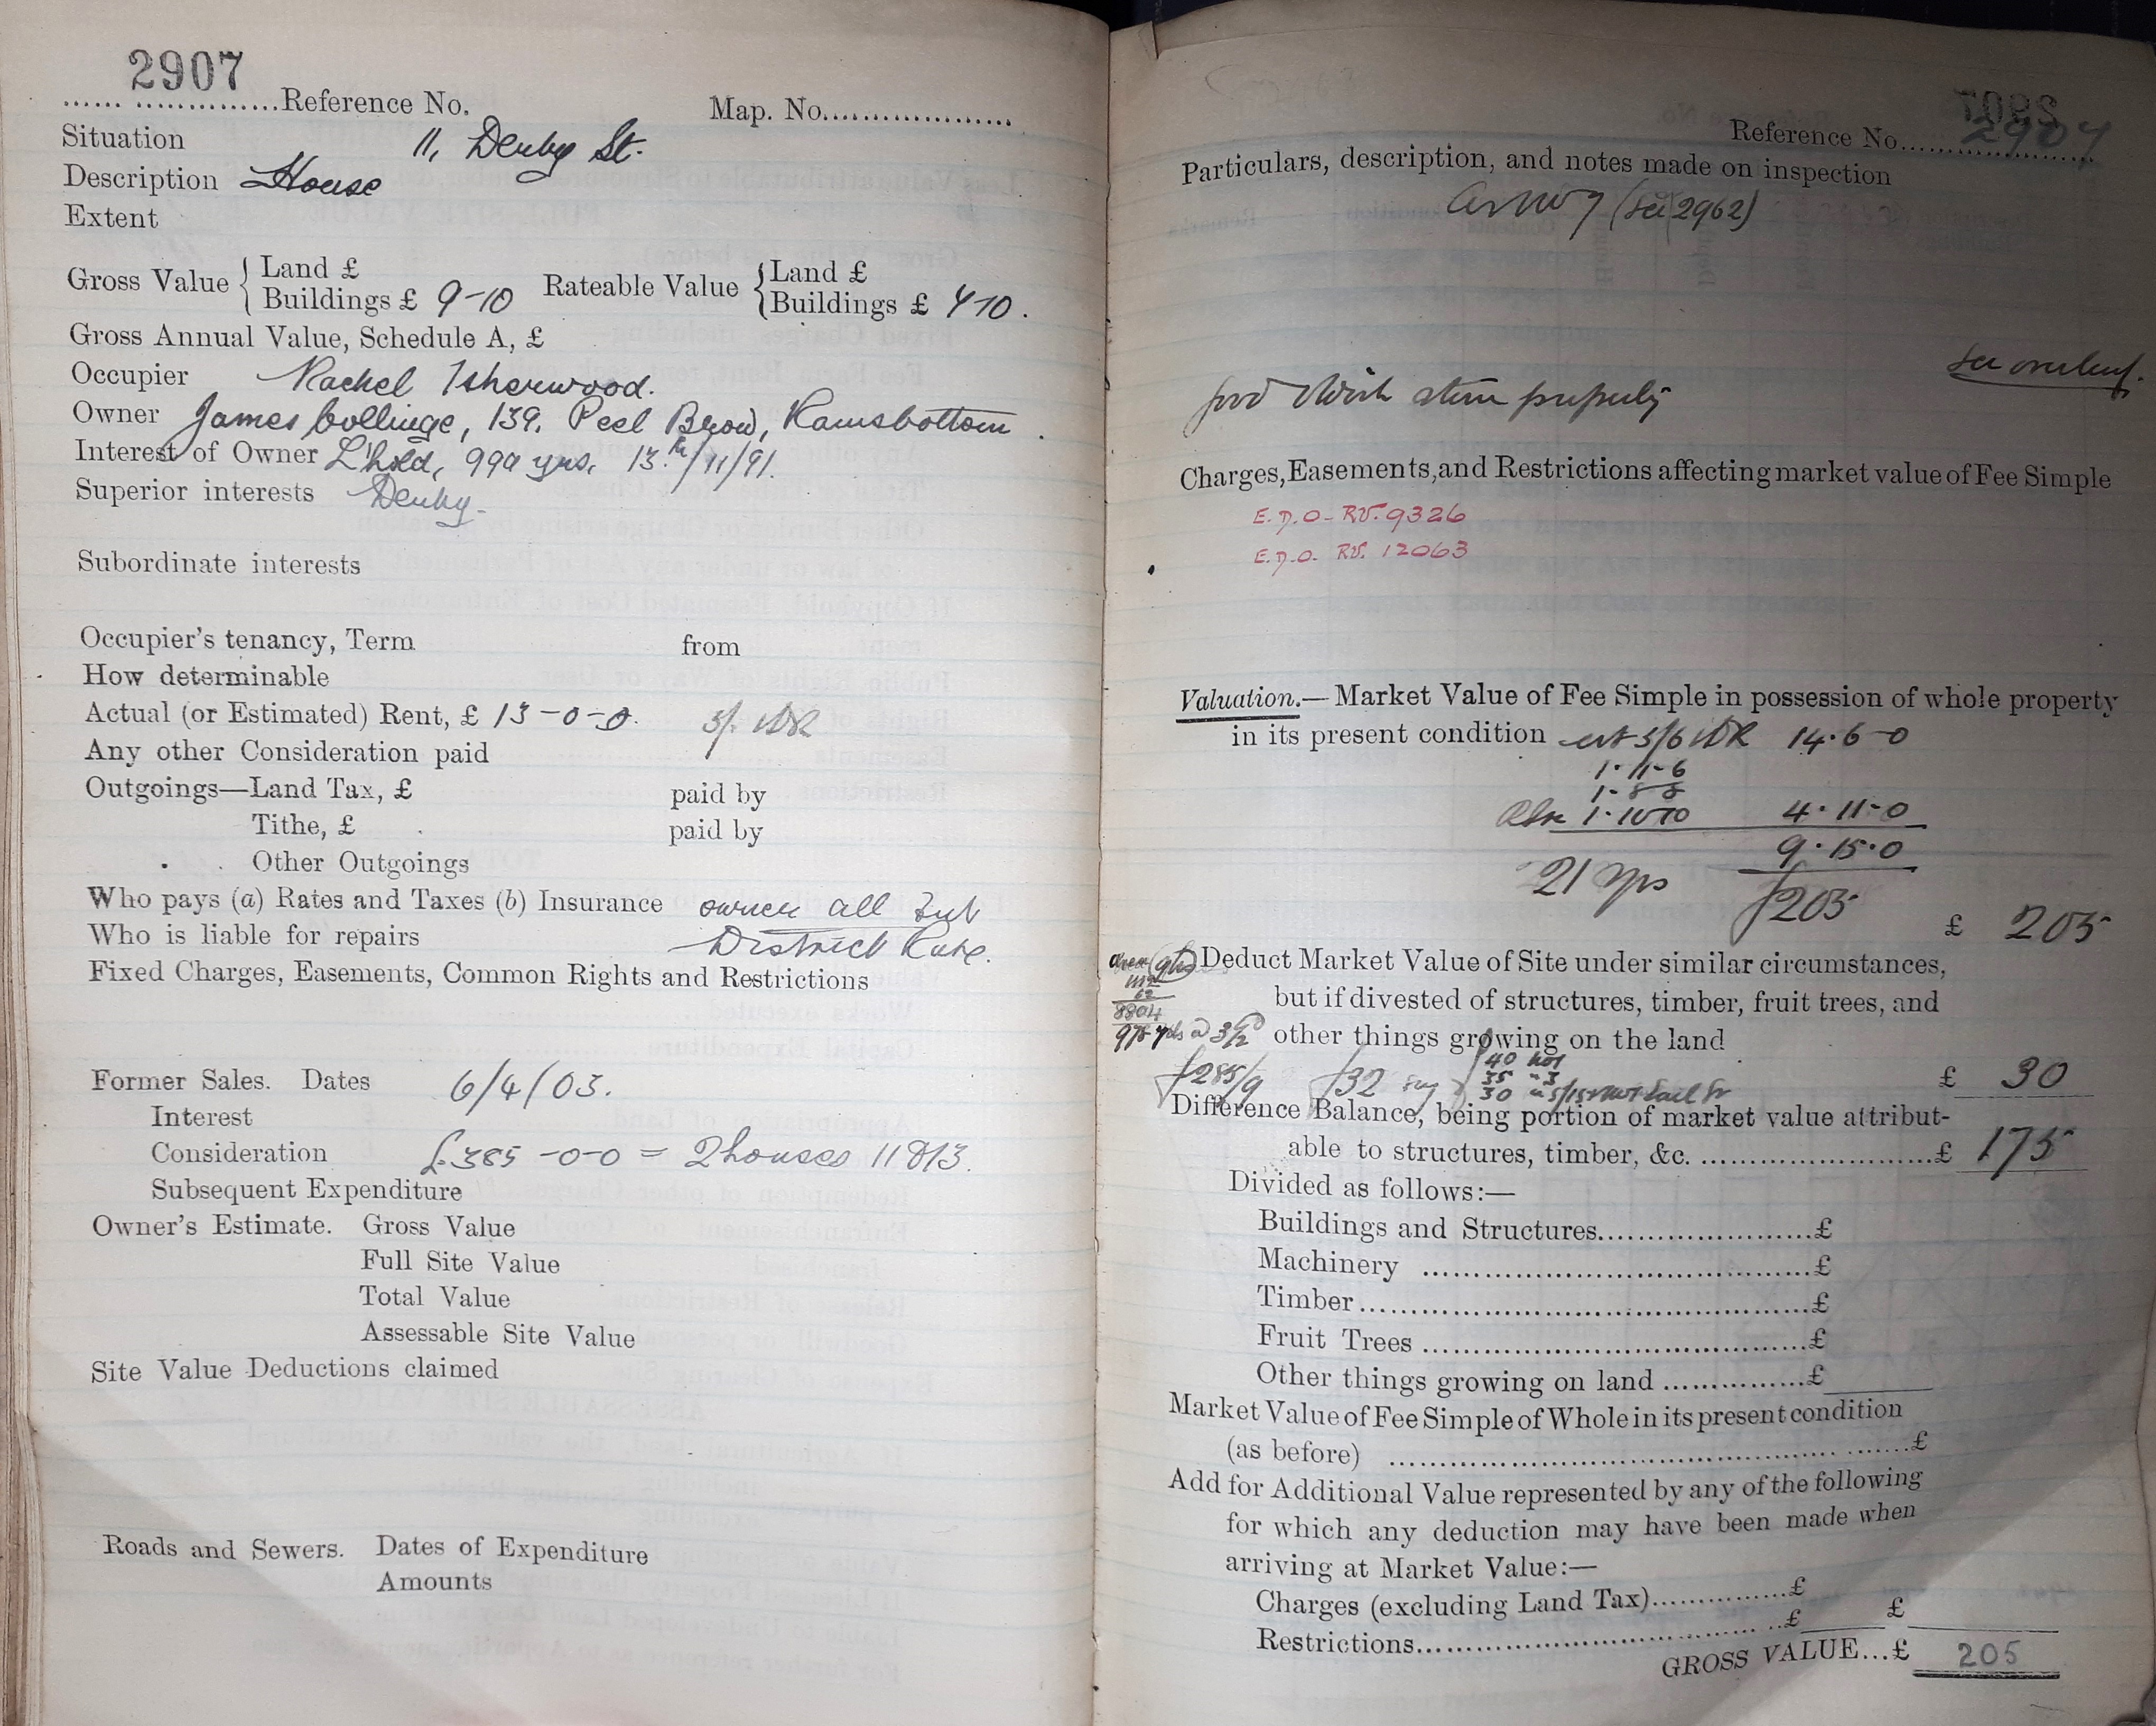 2907
Reference No. Map. No.
Situation 11, Derby St.
Description House
Extent
Gross Value { Land £ Rateable Value { Land £
Buildings £ 9-10 Buildings £ 7-10.
Gross Annual Value, Schedule A, £
Occupier Rachel Isherwood.
Owner James Collinge, 139. Peel Brow, Ramsbottom.
Interest of Owner L'hold, 999 yrs, 13th/11/91.
Superior interests Derby-
Subordinate interests
Occupier's tenancy, Term from
How determinable
Actual (or Estimated) Rent, £ 13-0-0. 5/-
Any other Consideration paid
Outgoings—Land Tax, £ paid by
Tithe, £ paid by
Other Outgoings
Who pays (a) Rates and Taxes (b) Insurance owner all but
Who is liable for repairs District Rate.
Fixed Charges, Easements, Common Rights and Restrictions
Former Sales. Dates 6/4/03.
Interest
Consideration £385-0-0 = 2 houses 11 & 13.
Subsequent Expenditure
Owner's Estimate. Gross Value
Full Site Value
Total Value
Assessable Site Value
Site Value Deductions claimed
Roads and Sewers. Dates of Expenditure
Amounts
Reference No. 2907
Particulars, description, and notes made on inspection
(see 2962)
see overleaf.
good stone property
Charges, Easements, and Restrictions affecting market value of Fee Simple
E.D.O-RV. 9326
E.D.O. RV. 12063
Valuation.— Market Value of Fee Simple in possession of whole property
in its present condition est 5/6 14.6-0
1-11-6
1-8-8
1-10-10 4-11-0
9.15.0
21 yps £205
£ 205
Deduct Market Value of Site under similar circumstances,
but if divested of structures, timber, fruit trees, and
other things growing on the land
£ 30
Difference Balance, being portion of market value attribut-
able to structures, timber, &c. £ 175
Divided as follows:—
Buildings and Structures £
Machinery £
Timber £
Fruit Trees £
Other things growing on land £
Market Value of Fee Simple of Whole in its present condition
(as before) £
Add for Additional Value represented by any of the following
for which any deduction may have been made when
arriving at Market Value:—
Charges (excluding Land Tax) £
Restrictions £ £
GROSS VALUE...£ 205